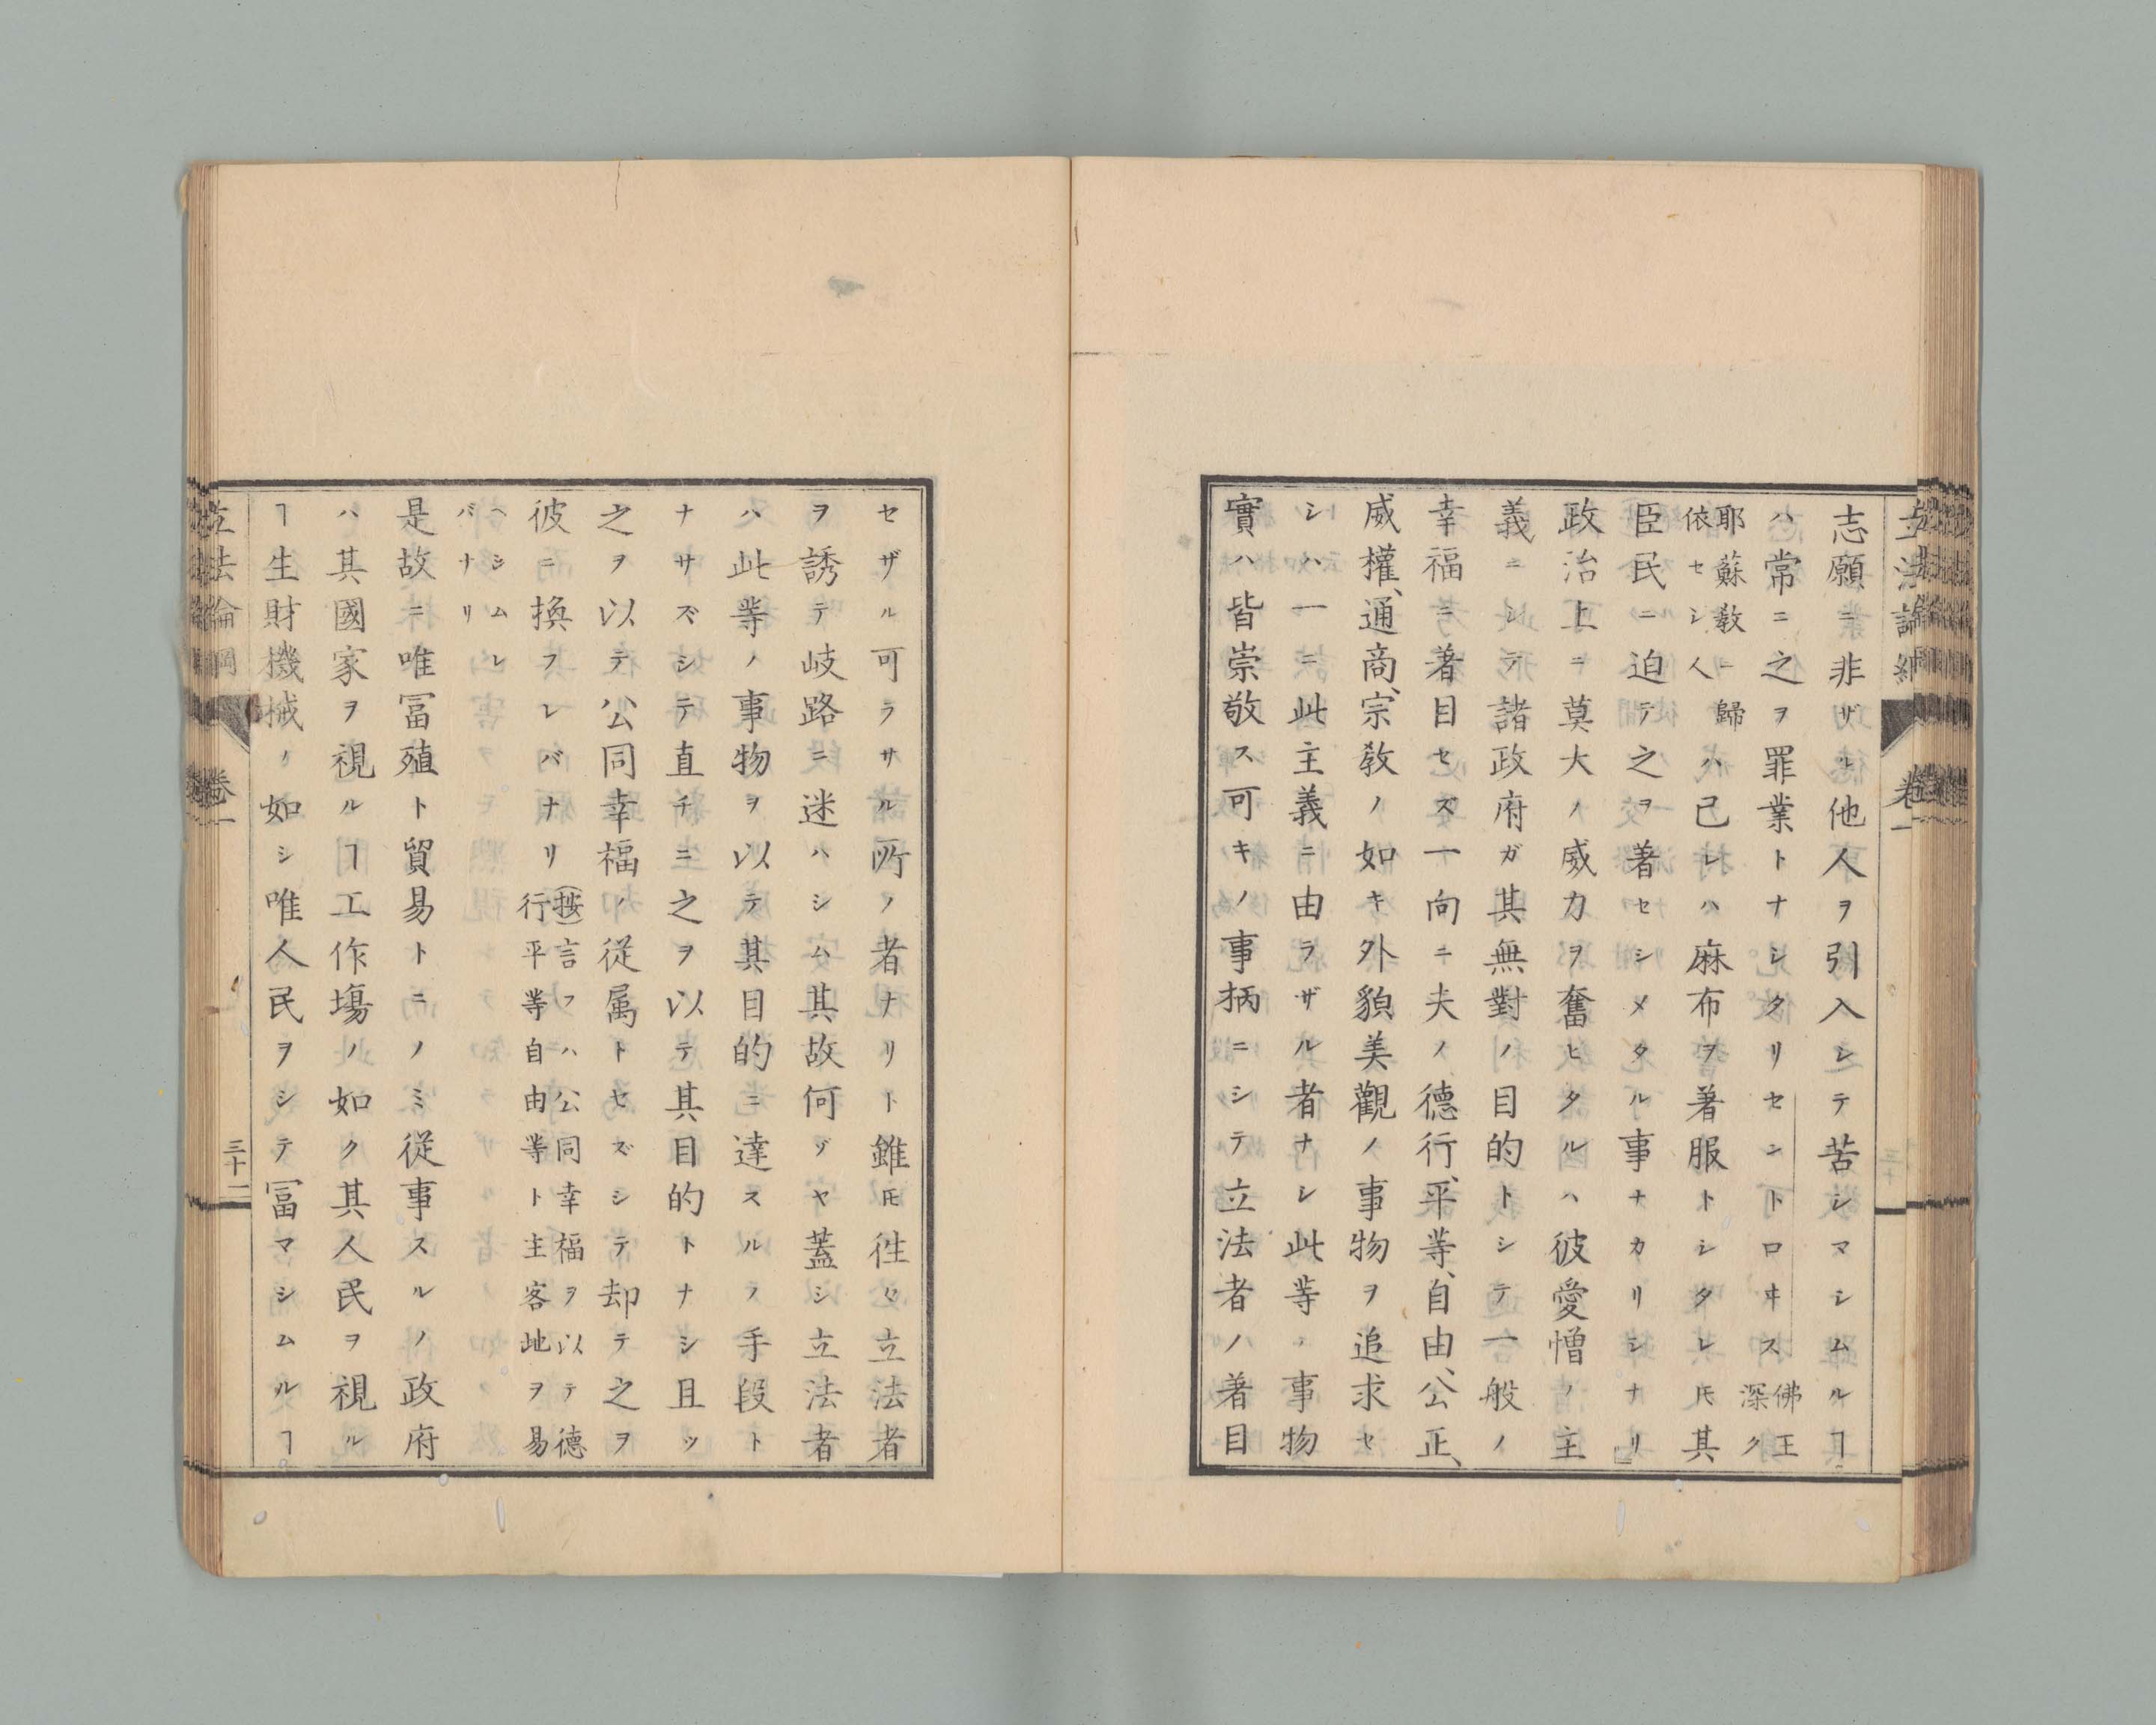 立法論綱 卷一
志願ニ非ザル他人ヲ引入シテ苦シマシムルヿ
ハ常ニ之ヲ罪業トナシタリセシントロヰス佛王深ク
耶蘇教ニ歸依セシ人ハ已レハ麻布ヲ著服トシタレ𪜈其
臣民ニ迫テ之ヲ著セシメタル事ナカリシナリ」
政治上ニ莫大ノ威力ヲ奮ヒタルハ彼愛憎ノ主
義ニシテ諸政府ガ其無對ノ目的トシテ一般ノ
幸福ニ著目セズ一向ニ夫ノ德行、平等、自由、公正、
威權、通商、宗教ノ如キ外貌美觀ノ事物ヲ追求セ
シハ一ニ此主義ニ由ラザル者ナシ此等ノ事物
實ハ皆崇敬ス可キノ事柄ニシテ立法者ノ著目
セザル可ラサル所ノ者ナリト雖𪜈徃々立法者
ヲ誘テ岐路ニ迷ハシム其故何ゾヤ蓋シ立法者
ハ此等ノ事物ヲ以テ其目的ニ達スルノ手段ト
ナサズシテ直チニ之ヲ以テ其目的トナシ且ツ
之ヲ以テ公同幸福ノ從属トセズシテ却テ之ヲ
彼ニ換フレバナリ(按)言フハ公同幸福ヲ以テ德行平等自由等ト主客地ヲ易
ヘシムレバナリ
是故ニ唯冨殖ト貿易トニノミ從事スルノ政府
ハ其國家ヲ視ルヿ工作塲ノ如ク其人民ヲ視ル
ヿ生財機械ノ如シ唯人民ヲシテ冨マシムルヿ
立法論綱 卷一 三十一